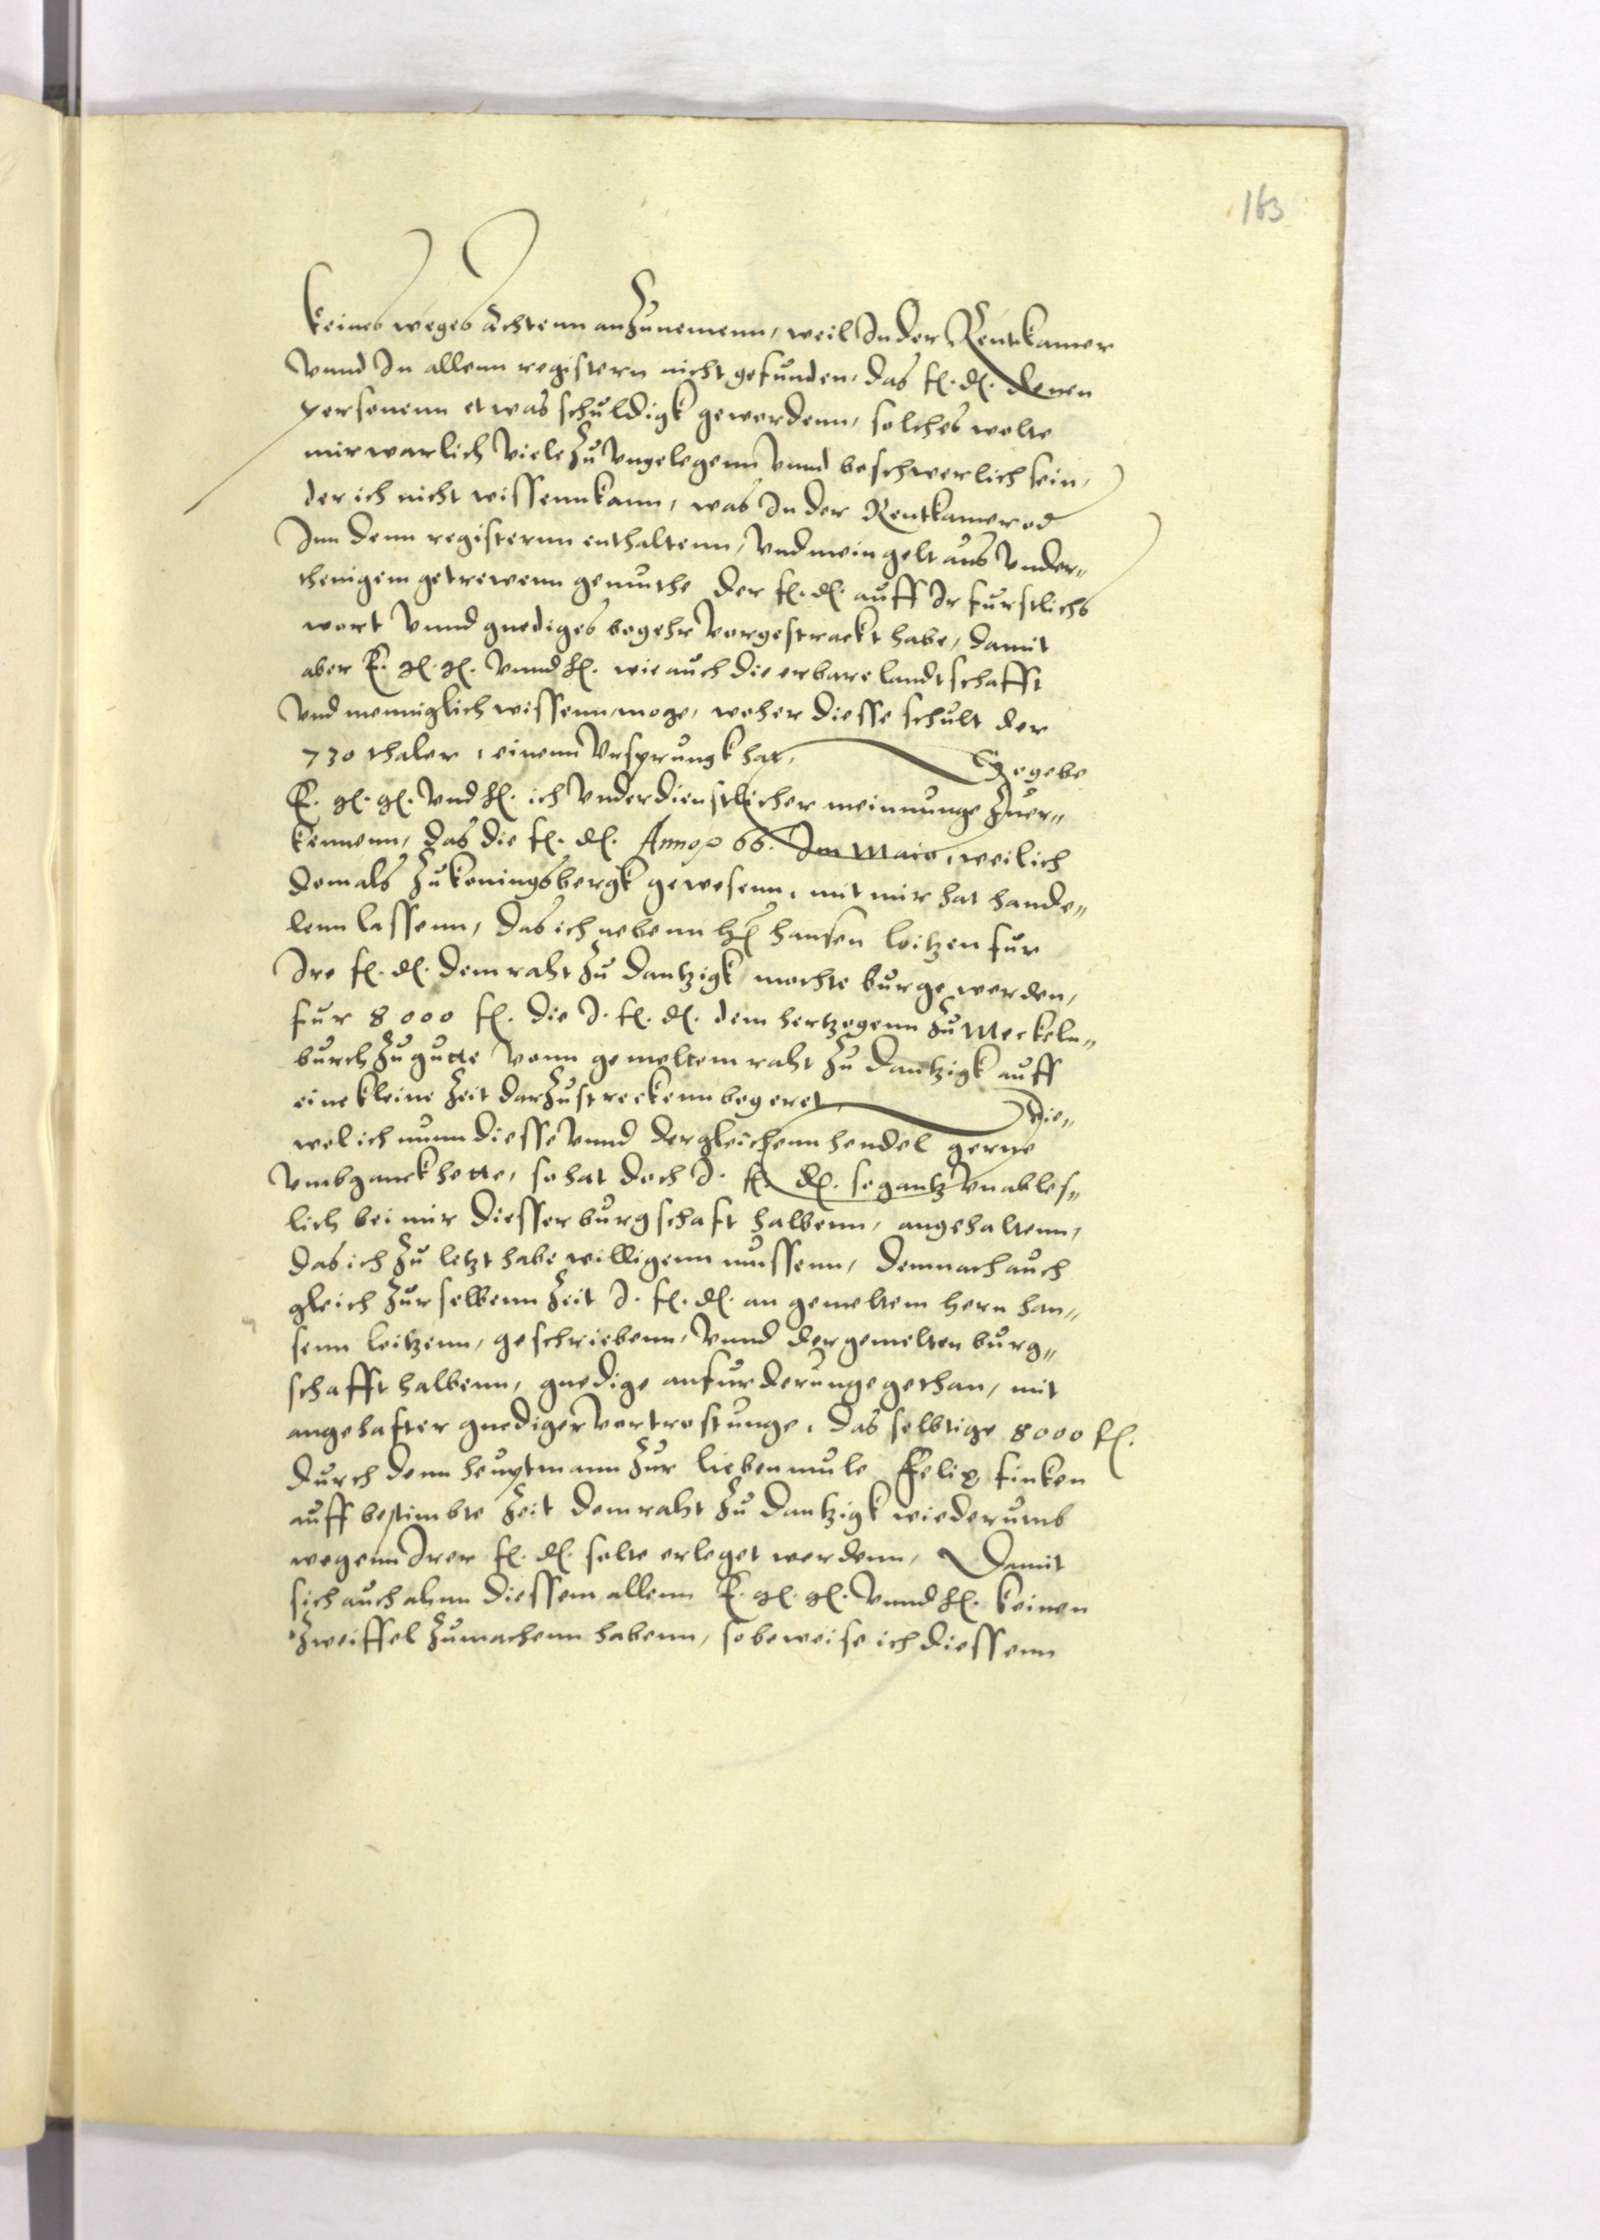 163
keines weges Achtenn anzunemenn, weil In der Rentkamer
vnnd In allenn registern nicht gefunden, das f. d. denen
personenn etwas schuldigk gewordenn, solches wolte
mir warlich viele zu vngelegenn vnnd beschwerlich sein,
der ich nicht wissenn kann, was In der Rentkamer od
Inn denn registernn enthaltenn, vnd mein gelt aus vnder„
thenigem getrewenn gemuthe der f. d. auff Ir furstlichs
wort vnnd gnediges begehr vorgestrackt habe, damit
aber E. g. g. vnnd h. wie auch die erbare landtschafft
vnd menniglich wissenn moge, woher diesse schult der
730 thaler, einenn Vrsprungk hat, Gegebe
E. g. g. vnd h. ich vnderdienstlicher meinnunge zuer„
kennenn, das die f. d. Anno 66. Im Maio, weil ich
domals zu koningsbergk gewesenn, mit mir hat hande„
lenn lassenn, das ich nebenn h hansen loitzen fur
Ire f. d. dem raht zu dantzigk mochte burge werden,
fur 8000 f. die I. f. d. dem hertzogenn zu Meckeln„
burch zu gutte vonn gemeltem raht zu dantzigk auff
eine kleine zeit darzustreckenn begeret, Die„
wol ich nunn diesse vnnd dergleichenn hendel gerne
vmbganck hette, so hat doch I. f. d. so gantz vnables„
lich bei mir diesser burgschaft halbenn, angehaltenn,
das ich zu letzt habe willigenn mussenn, demnach auch
gleich zur selbenn zeit I. f. d. an gemeltem hern han„
senn loitzenn, geschriebenn, vnnd der gemelten burg„
schafft halbenn, gnedige anfurderunge gethan, mit
angehafter gnediger vortrostunge, das selbtige 8000 f.
durch denn heuptmann zur liebenmule Felix finken
auff bestimbte zeit dem raht zu dantzigk wiederumb
wegenn Irer f. d. solte erleget werdenn, Damit
sich auch ahnn diessem allenn E. g. g. vnnd h. keinen
zweiffel zumachenn habenn, so beweise ich diessenn